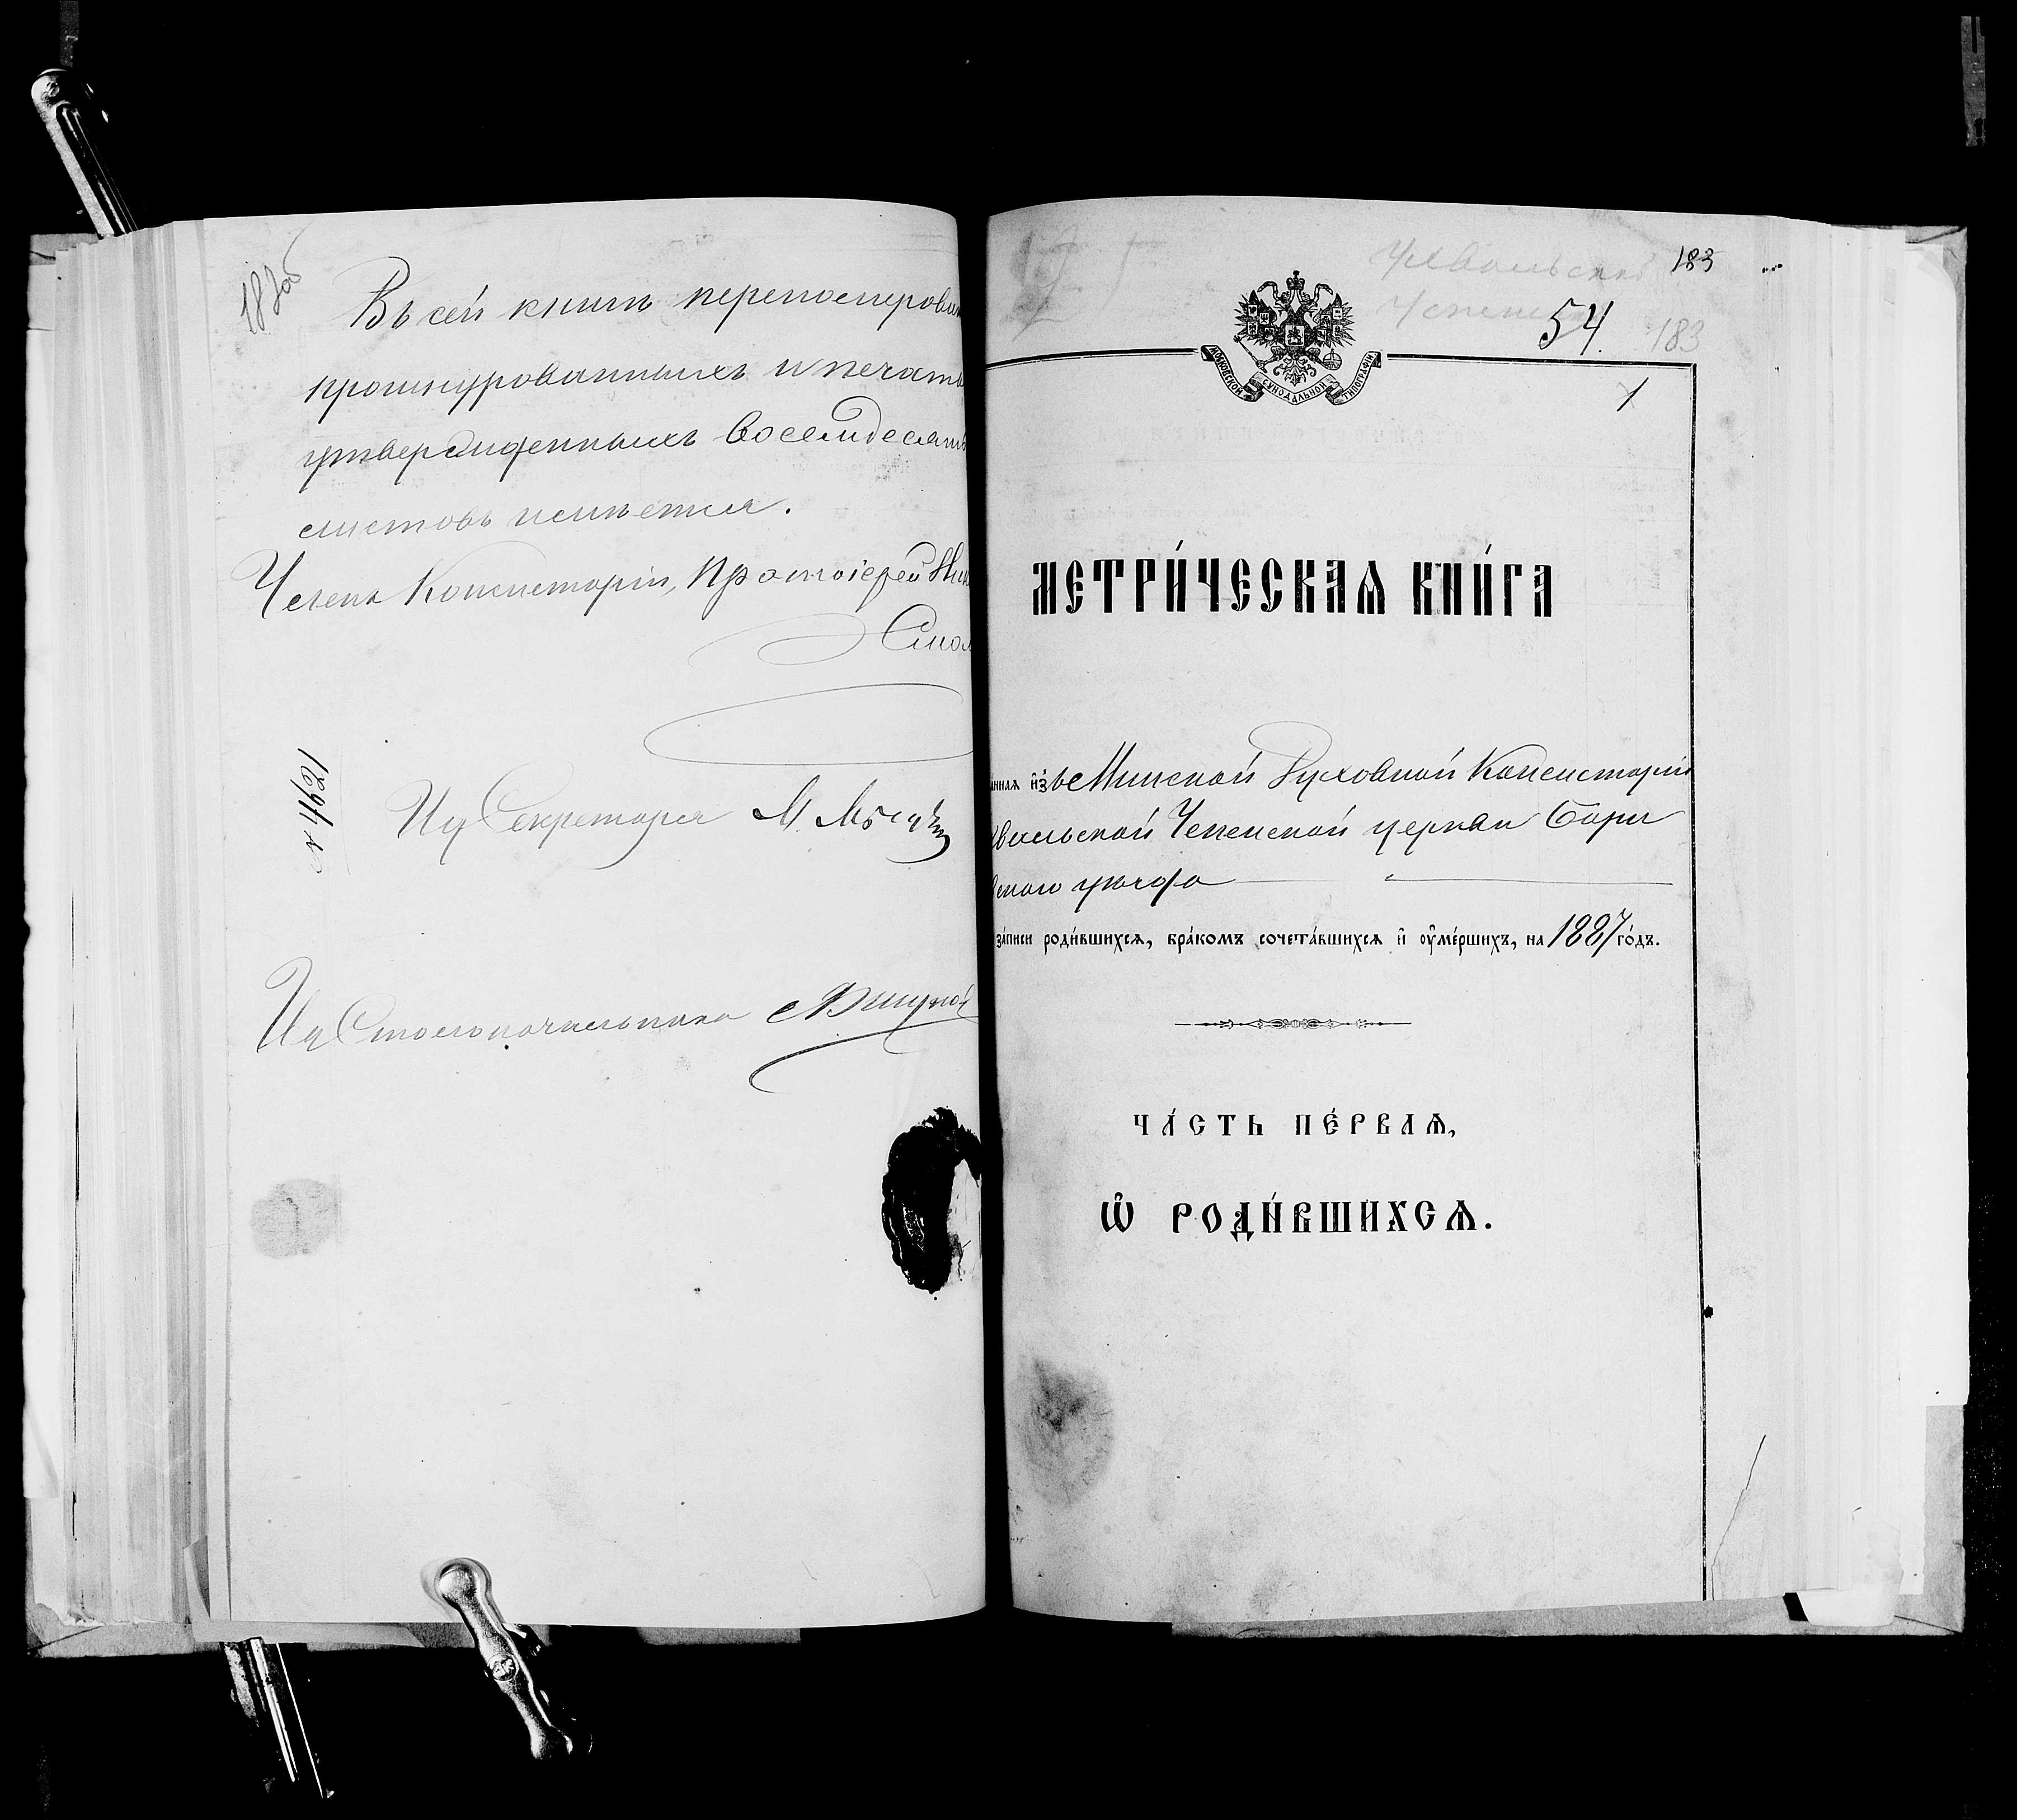 182об
Въ сей книгѣ перенумерован
прошнурованныхъ и печатью
утвержденныхъ восемдесятъ
листовъ имѣется.
Членъ Консисторіи, Протоіерей
Смол
Иц Секретаря М.
Иц Столоначальника
183
Ухвальской
54
183
МОСКОВСКОЙ СУНОДАЛЬНОЙ ТИПОГРАФІИ
1
МЕТРИ́ЧЕСКАѦ КНИ́ГА
анная и҆зъ Минской Духовной Консисторіи
хвальской Чепенской церкви Бори
вскаго уѣзда
за́писи роди́вшихсѧ, бра́комъ сочета́вшихсѧ и҆ оу҆ме́ршихъ, на 1887 го́дъ.
ЧА́СТЬ ПЕ́РВАѦ,
Ѽ РОДИ́ВШИХСѦ.